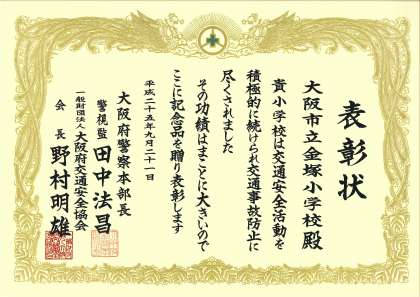 表彰状
大阪市立金塚小学校殿
貴小学校は交通安全活動を
積極的に続けられ交通事故防止に
尽くされました
その功績はまことに大きいので
ここに記念品を贈り表彰します
平成二十五年九月二十一日
大阪府警察本部長
警視監 田中法昌
一般財団法人 大阪府交通安全協会
会長 野村明雄